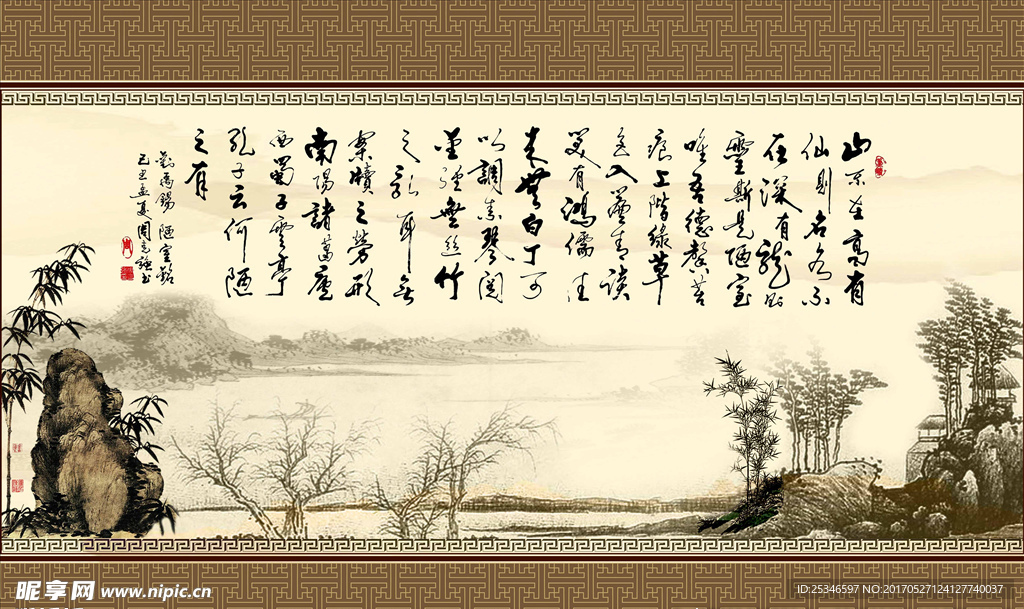 山不在高有
仙則名水不
在深有龍則
靈斯是陋室
唯吾德馨苔
痕上階緑草
色入簾青談
笑有鴻儒往
来無白丁可
以調素琴閱
金經無絲竹
之亂耳無
案牘之勞形
南陽諸葛廬
西蜀子雲亭
孔子云何陋
之有
劉禹錫 陋室銘
己丑孟夏周書
昵享网 www.nipic.cn
ID:25346597 NO:20170527124127740037